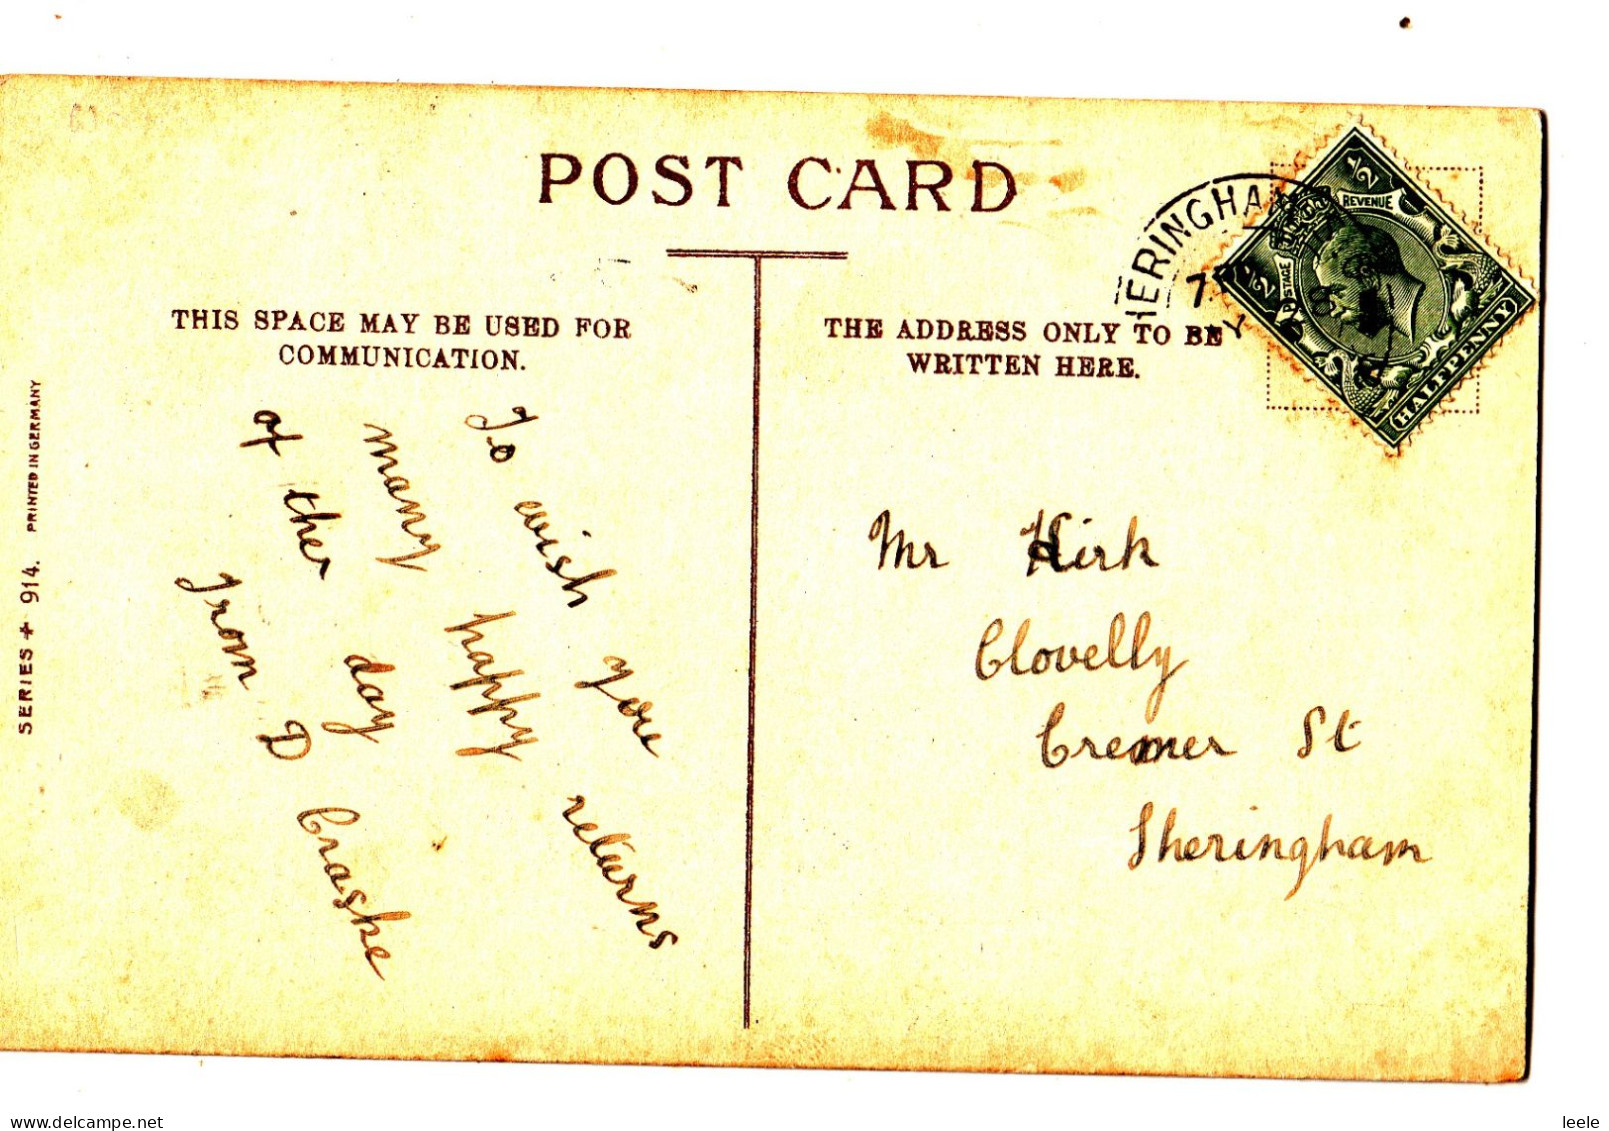 POST CARD
THIS SPACE MAY BE USED FOR
COMMUNICATION.
THE ADDRESS ONLY TO BE
WRITTEN HERE.
HERINGHAM
7
8
MY
POSTAGE
REVENUE
1/2
1/2
HALFPENNY
SERIES + 914. PRINTED IN GERMANY
To wish you
many happy returns
of ther day
from D Craske
Mr Kirk
Clovelly
Cremer St
Sheringham
© www.delcampe.net
leele